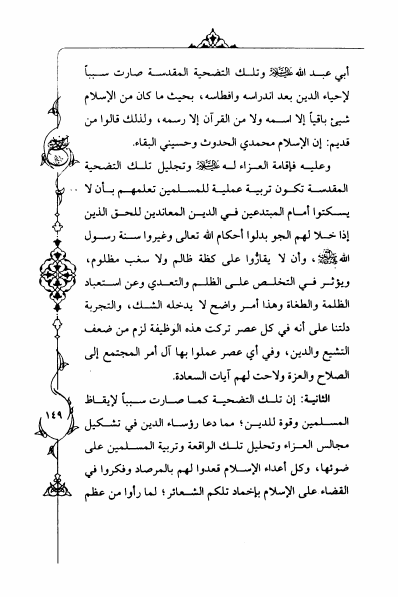 أبي عبد الله عليه السلام وتلك التضحية المقدسة صارت سبباً
لإحياء الدين بعد اندراسه وافطاسه، بحيث ما كان من الإسلام
شيئ باقياً إلا اسمه ولا من القرآن إلا رسمه، ولذلك قالوا من
قديم: إن الإسلام محمدي الحدوث وحسيني البقاء.
وعليه فإقامة العزاء له عليه السلام وتجليل تلك التضحية
المقدسة تكون تربية عملية للمسلمين تعلمهم بأن لا
يسكتوا أمام المبتدعين في الدين المعاندين للحق الذين
إذا خلا لهم الجو بدلوا أحكام الله تعالى وغيروا سنة رسول
الله ﷺ، وأن لا يقارّوا على كظة ظالم ولا سغب مظلوم،
ويؤثر في التخلص على الظلم والتعدي وعن استعباد
الظلمة والطغاة وهذا أمر واضح لا يدخله الشك، والتجربة
دلتنا على أنه في كل عصر تركت هذه الوظيفة لزم من ضعف
التشيع والدين، وفي أي عصر عملوا بها آل أمر المجتمع إلى
الصلاح والعزة ولاحت لهم آيات السعادة.
الثانية: إن تلك التضحية كما صارت سبباً لإيقاظ
المسلمين وقوة للدين؛ مما دعا رؤساء الدين في تشكيل
مجالس العزاء وتحليل تلك الواقعة وتربية المسلمين على
ضوئها، وكل أعداء الإسلام قعدوا لهم بالمرصاد وفكروا في
القضاء على الإسلام بإخماد تلكم الشعائر؛ لما رأوا من عظم
١٤٩